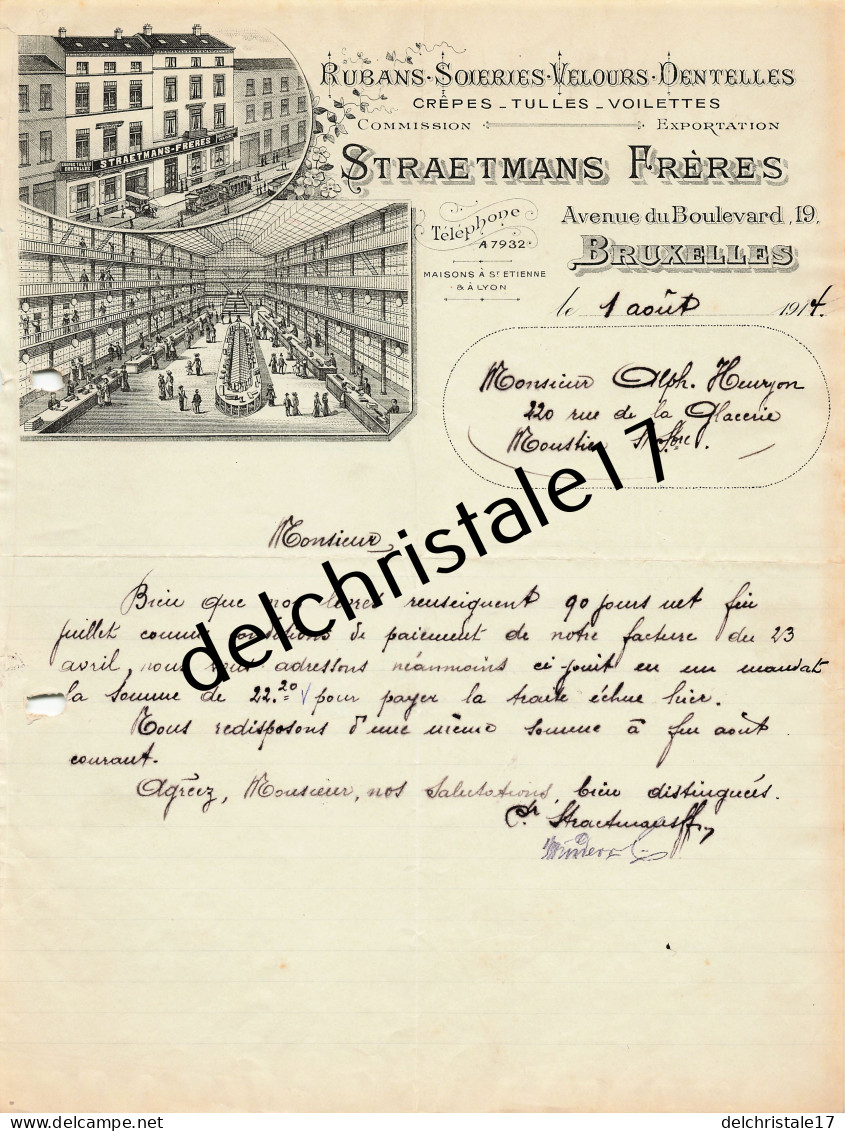 RUBANS-SOIERIES-VELOURS-DENTELLES
CRÊPES-TULLES-VOILETTES
COMMISSION EXPORTATION
STRAETMANS FRÈRES
STRAETMANS-FRERES
Avenue du Boulevard, 19,
Téléphone
A 7932
BRUXELLES
MAISONS À ST ETIENNE
& À LYON
le 1 août 1914.
Monsieur Alph. Heuryon
220 rue de la Glacerie
Moustier s/Sbre.
delchristale17
Monsieur,
Bien que nos livres renseignent 90 jours net fin
juillet comme conditions de paiement de notre facture du 23
avril, nous vous adressons néanmoins ci-joint en un mandat
la somme de 22.20 pour payer la traite échue hier.
Nous redisposons d'une même somme à fin août
courant.
Agréez, Monsieur, nos salutations bien distinguées.
Pr Straetmans ff
delchristale17 delchristale17